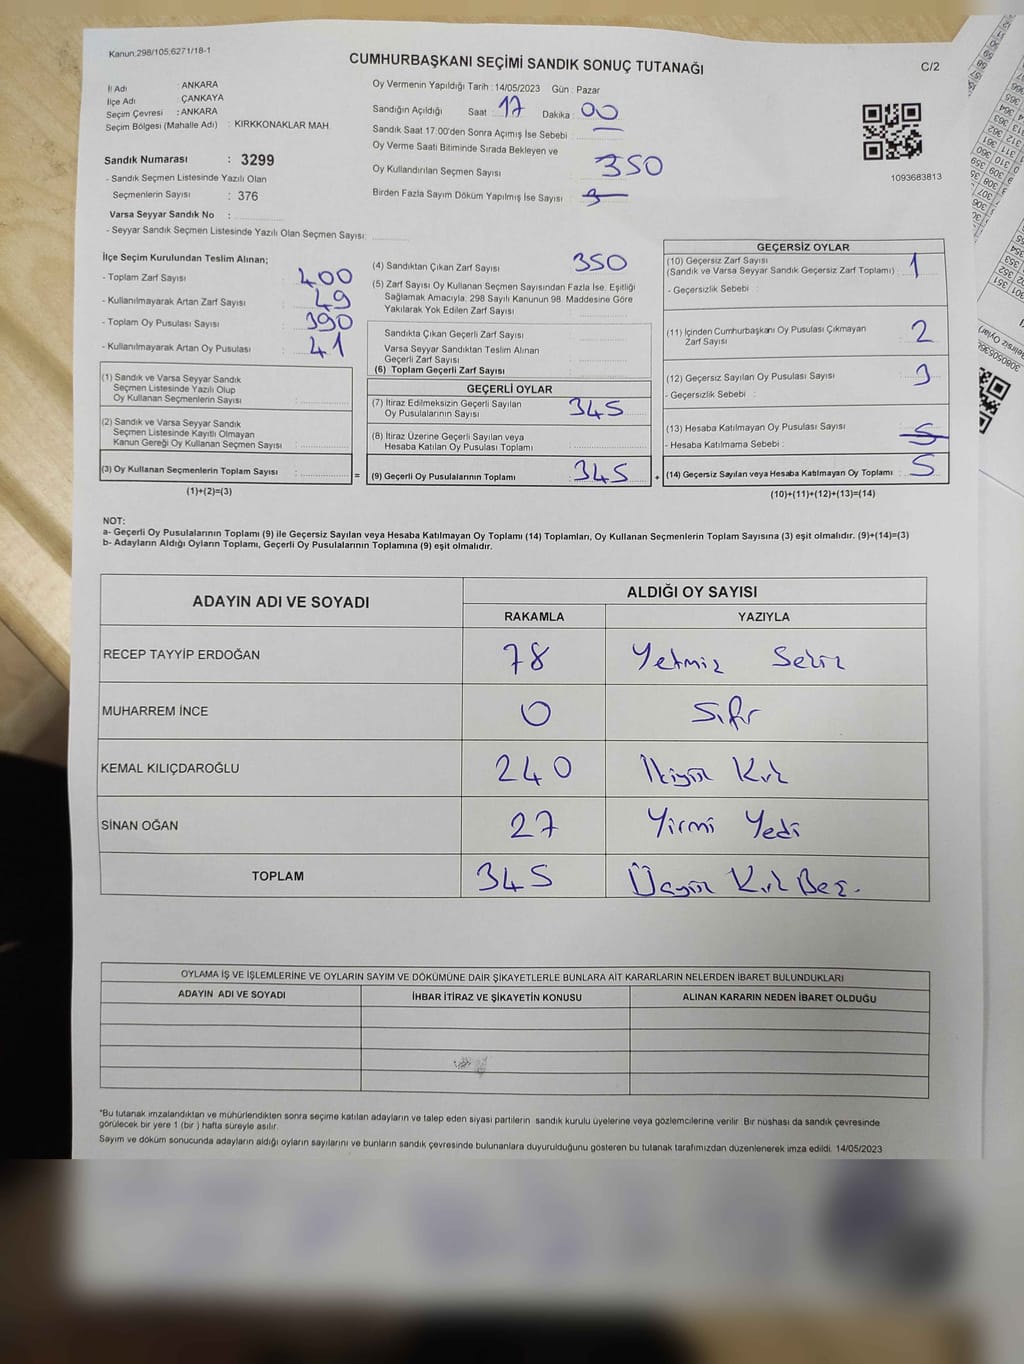 Kanun:298/105;6271/18-1
CUMHURBAŞKANI SEÇİMİ SANDIK SONUÇ TUTANAĞI
C/2
İl Adı : ANKARA
İlçe Adı : ÇANKAYA
Seçim Çevresi : ANKARA
Seçim Bölgesi (Mahalle Adı) : KIRKKONAKLAR MAH.
Sandık Numarası : 3299
- Sandık Seçmen Listesinde Yazılı Olan
Seçmenlerin Sayısı : 376
Varsa Seyyar Sandık No :
- Seyyar Sandık Seçmen Listesinde Yazılı Olan Seçmen Sayısı:
Oy Vermenin Yapıldığı Tarih : 14/05/2023 Gün : Pazar
Sandığın Açıldığı Saat : 17 Dakika : 00
Sandık Saat 17:00'den Sonra Açımış İse Sebebi :
Oy Verme Saati Bitiminde Sırada Bekleyen ve
Oy Kullandırılan Seçmen Sayısı : 350
Birden Fazla Sayım Döküm Yapılmış İse Sayısı :
1093683813
İlçe Seçim Kurulundan Teslim Alınan;
- Toplam Zarf Sayısı : 400
- Kullanılmayarak Artan Zarf Sayısı : 49
- Toplam Oy Pusulası Sayısı : 390
- Kullanılmayarak Artan Oy Pusulası : 41
(1) Sandık ve Varsa Seyyar Sandık
Seçmen Listesinde Yazılı Olup
Oy Kullanan Seçmenlerin Sayısı :
(2) Sandık ve Varsa Seyyar Sandık
Seçmen Listesinde Kayıtlı Olmayan
Kanun Gereği Oy Kullanan Seçmen Sayısı :
(3) Oy Kullanan Seçmenlerin Toplam Sayısı : =
(1)+(2)=(3)
(4) Sandıktan Çıkan Zarf Sayısı : 350
(5) Zarf Sayısı Oy Kullanan Seçmen Sayısından Fazla İse, Eşitliği
Sağlamak Amacıyla, 298 Sayılı Kanunun 98. Maddesine Göre
Yakılarak Yok Edilen Zarf Sayısı :
Sandıkta Çıkan Geçerli Zarf Sayısı :
Varsa Seyyar Sandıktan Teslim Alınan
Geçerli Zarf Sayısı :
(6) Toplam Geçerli Zarf Sayısı :
GEÇERLİ OYLAR
(7) İtiraz Edilmeksizin Geçerli Sayılan
Oy Pusulalarının Sayısı : 345
(8) İtiraz Üzerine Geçerli Sayılan veya
Hesaba Katılan Oy Pusulası Toplamı :
(9) Geçerli Oy Pusulalarının Toplamı : 345 +
GEÇERSİZ OYLAR
(10) Geçersiz Zarf Sayısı
(Sandık ve Varsa Seyyar Sandık Geçersiz Zarf Toplamı) : 1
- Geçersizlik Sebebi :
(11) İçinden Cumhurbaşkanı Oy Pusulası Çıkmayan
Zarf Sayısı : 2
(12) Geçersiz Sayılan Oy Pusulası Sayısı : 3
- Geçersizlik Sebebi :
(13) Hesaba Katılmayan Oy Pusulası Sayısı : 5
- Hesaba Katılmama Sebebi :
(14) Geçersiz Sayılan veya Hesaba Katılmayan Oy Toplamı : 5
(10)+(11)+(12)+(13)=(14)
NOT:
a- Geçerli Oy Pusulalarının Toplamı (9) ile Geçersiz Sayılan veya Hesaba Katılmayan Oy Toplamı (14) Toplamları, Oy Kullanan Seçmenlerin Toplam Sayısına (3) eşit olmalıdır. (9)+(14)=(3)
b- Adayların Aldığı Oyların Toplamı, Geçerli Oy Pusulalarının Toplamına (9) eşit olmalıdır.
ADAYIN ADI VE SOYADI ALDIĞI OY SAYISI
RAKAMLA YAZIYLA
RECEP TAYYİP ERDOĞAN 78 Yetmiş Sekiz
MUHARREM İNCE 0 Sıfır
KEMAL KILIÇDAROĞLU 240 İkiyüz Kırk
SİNAN OĞAN 27 Yirmi Yedi
TOPLAM 345 Üçyüz Kırk Beş.
OYLAMA İŞ VE İŞLEMLERİNE VE OYLARIN SAYIM VE DÖKÜMÜNE DAİR ŞİKAYETLERLE BUNLARA AİT KARARLARIN NELERDEN İBARET BULUNDUKLARI
ADAYIN ADI VE SOYADI İHBAR İTİRAZ VE ŞİKAYETİN KONUSU ALINAN KARARIN NEDEN İBARET OLDUĞU
*Bu tutanak imzalandıktan ve mühürlendikten sonra seçime katılan adayların ve talep eden siyasi partilerin sandık kurulu üyelerine veya gözlemcilerine verilir. Bir nüshası da sandık çevresinde
görülecek bir yere 1 (bir ) hafta süreyle asılır.
Sayım ve döküm sonucunda adayların aldığı oyların sayılarını ve bunların sandık çevresinde bulunanlara duyurulduğunu gösteren bu tutanak tarafımızdan düzenlenerek imza edildi. 14/05/2023